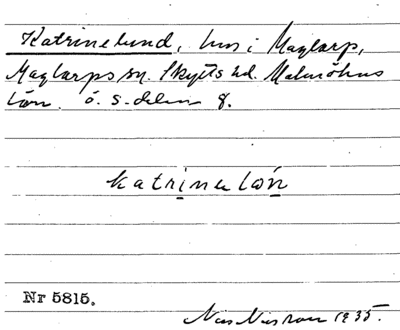 Katrinelund, hus i Maglarp,
Maglarps sn. Skytts hd. Malmöhus
län. ö. s. delen 8.
katrinelón
Nr 5815.
1935.